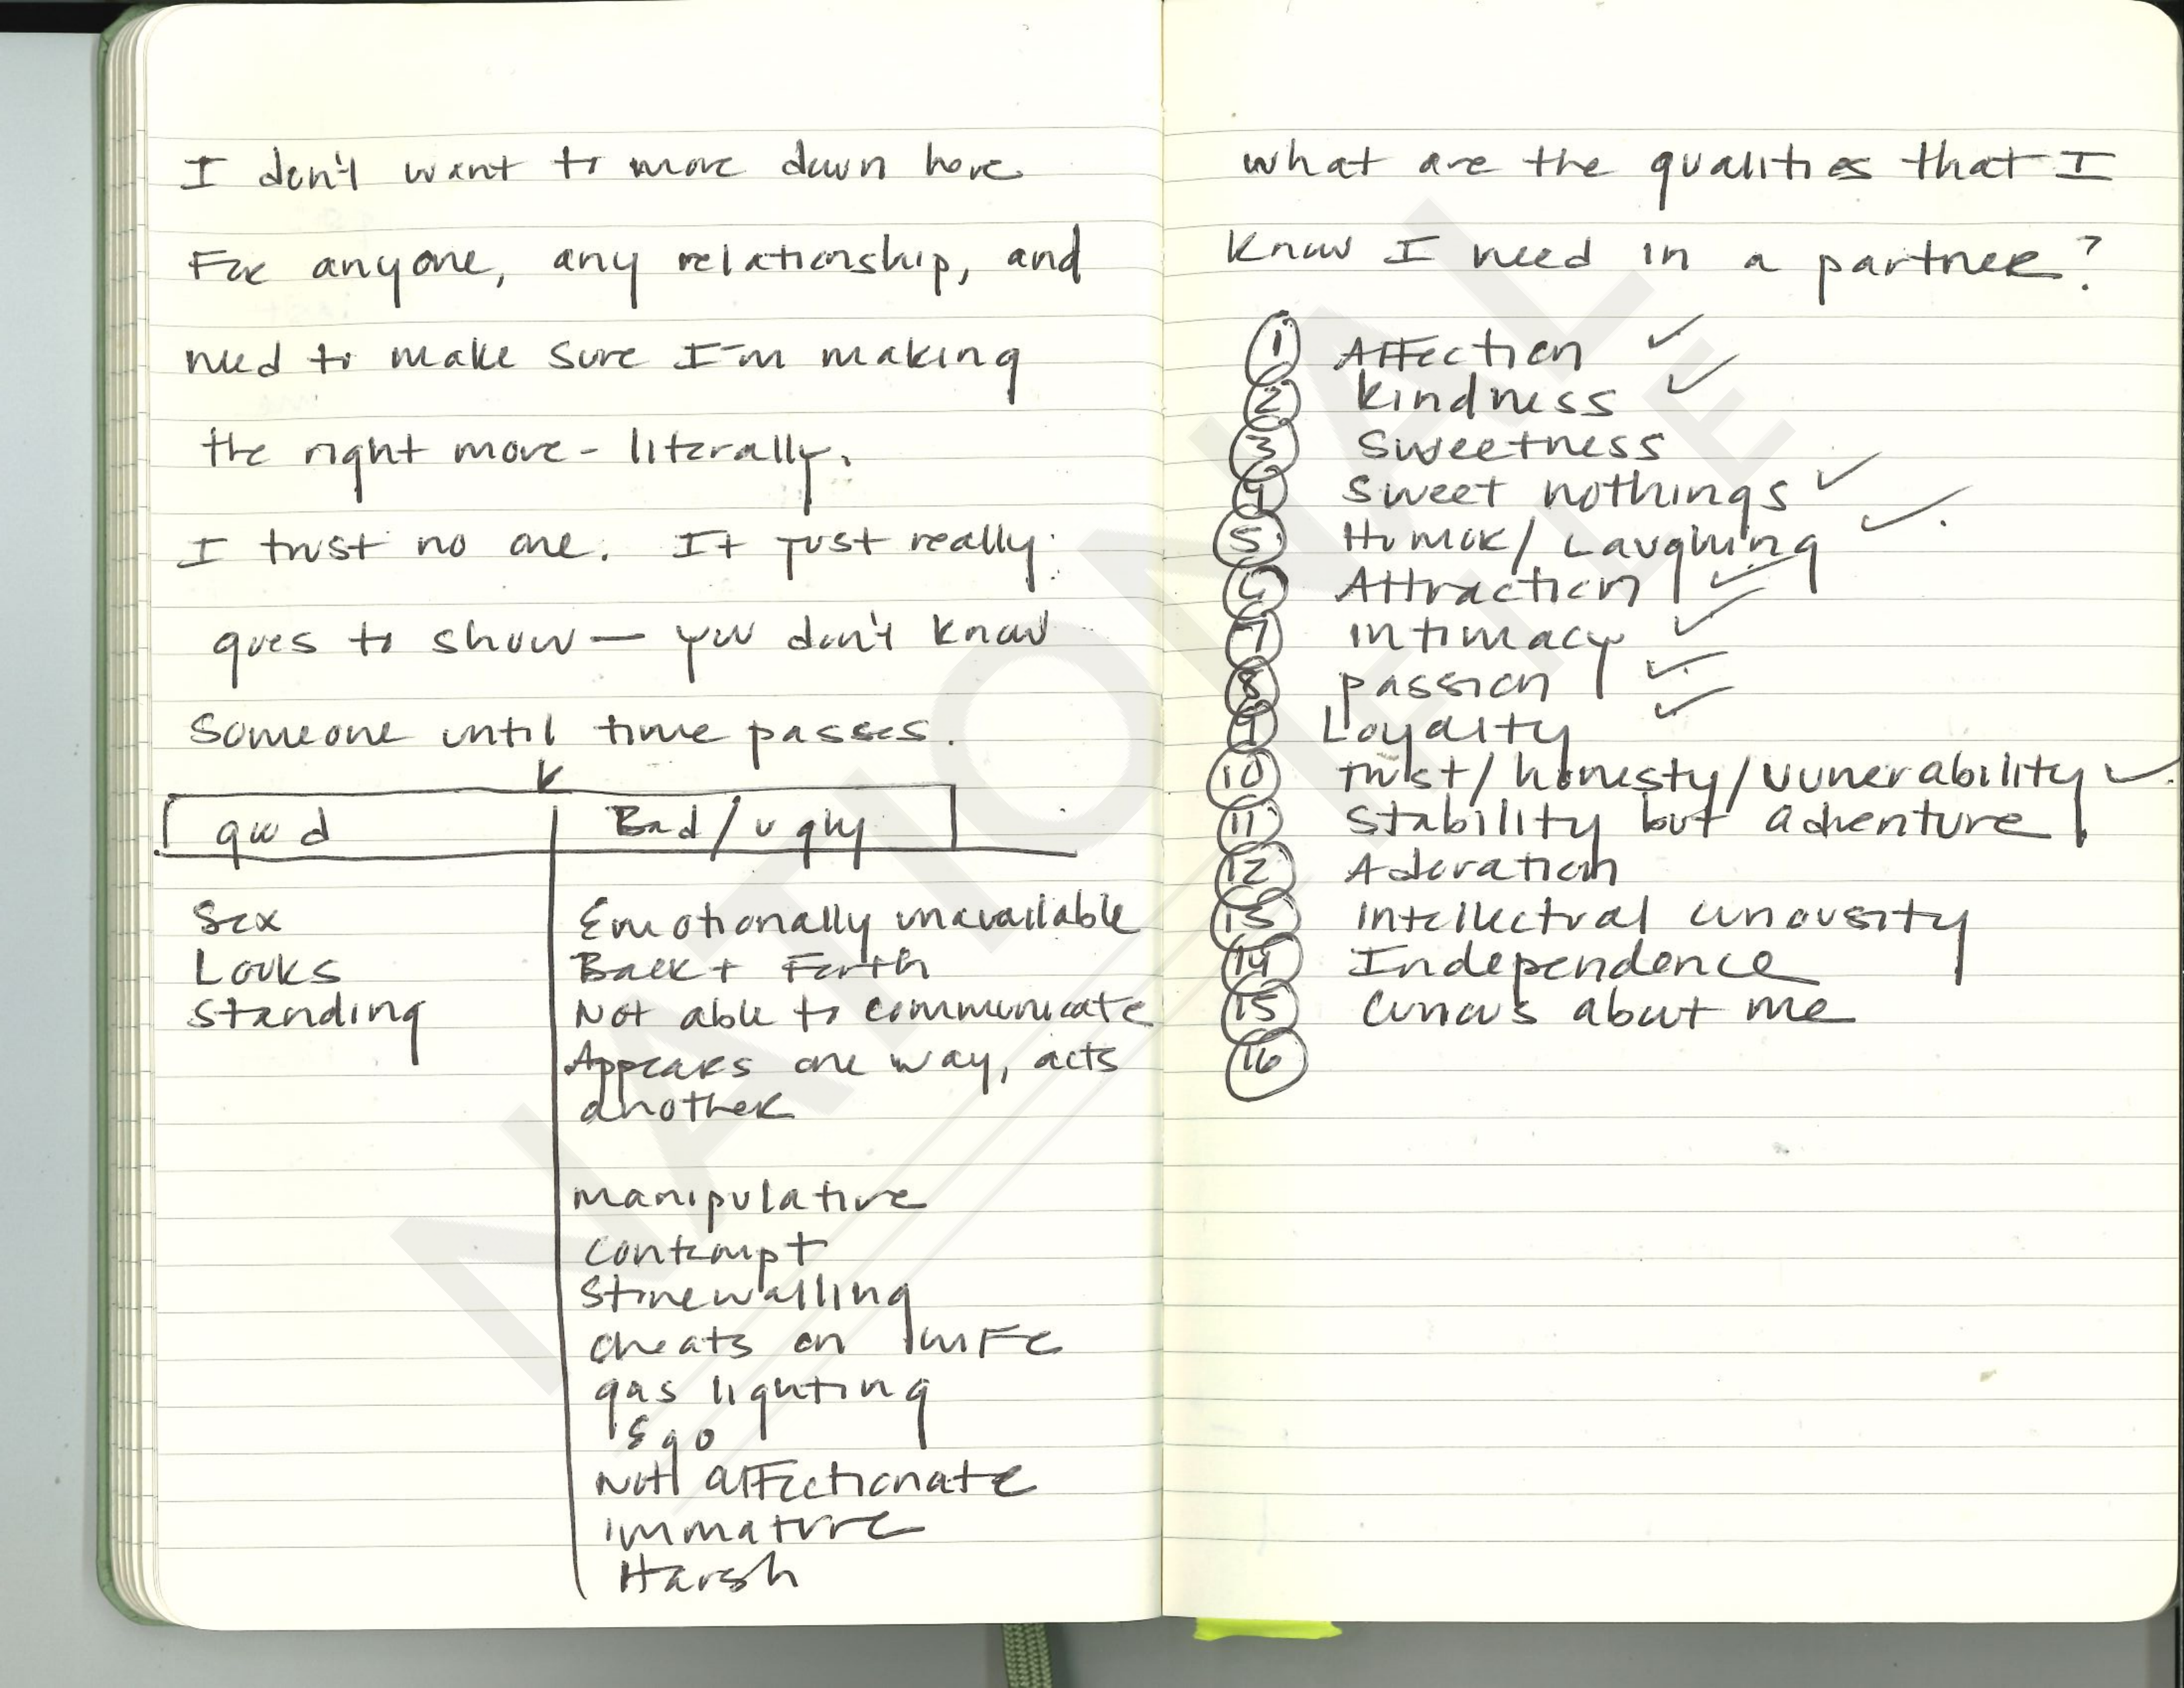 I don't want to move down here
For anyone, any relationship, and
need to make sure I'm making
the right move - literally.
I trust no one. It just really
goes to show — you don't know
someone until time passes.
K
good Bad/ugly
Sex Emotionally unavailable
Looks Back + Forth
Standing Not able to communicate
Appears one way, acts
another
manipulative
contempt
Stonewalling
cheats on wife
gas lighting
Ego
Not affectionate
immature
Harsh
what are the qualities that I
know I need in a partner?
1 Affection ✓
2 kindness ✓
3 Sweetness
4 Sweet nothings ✓
5 Humor/Laughing ✓
6 Attraction ✓
7 intimacy ✓
8 passion ✓
9 Loyalty ✓
10 trust/honesty/vunerability ✓
11 Stability but adventure
12 Adoration
13 Intellectual curiousity
14 Independence
15 Curious about me
16
NATIONAL
FILE